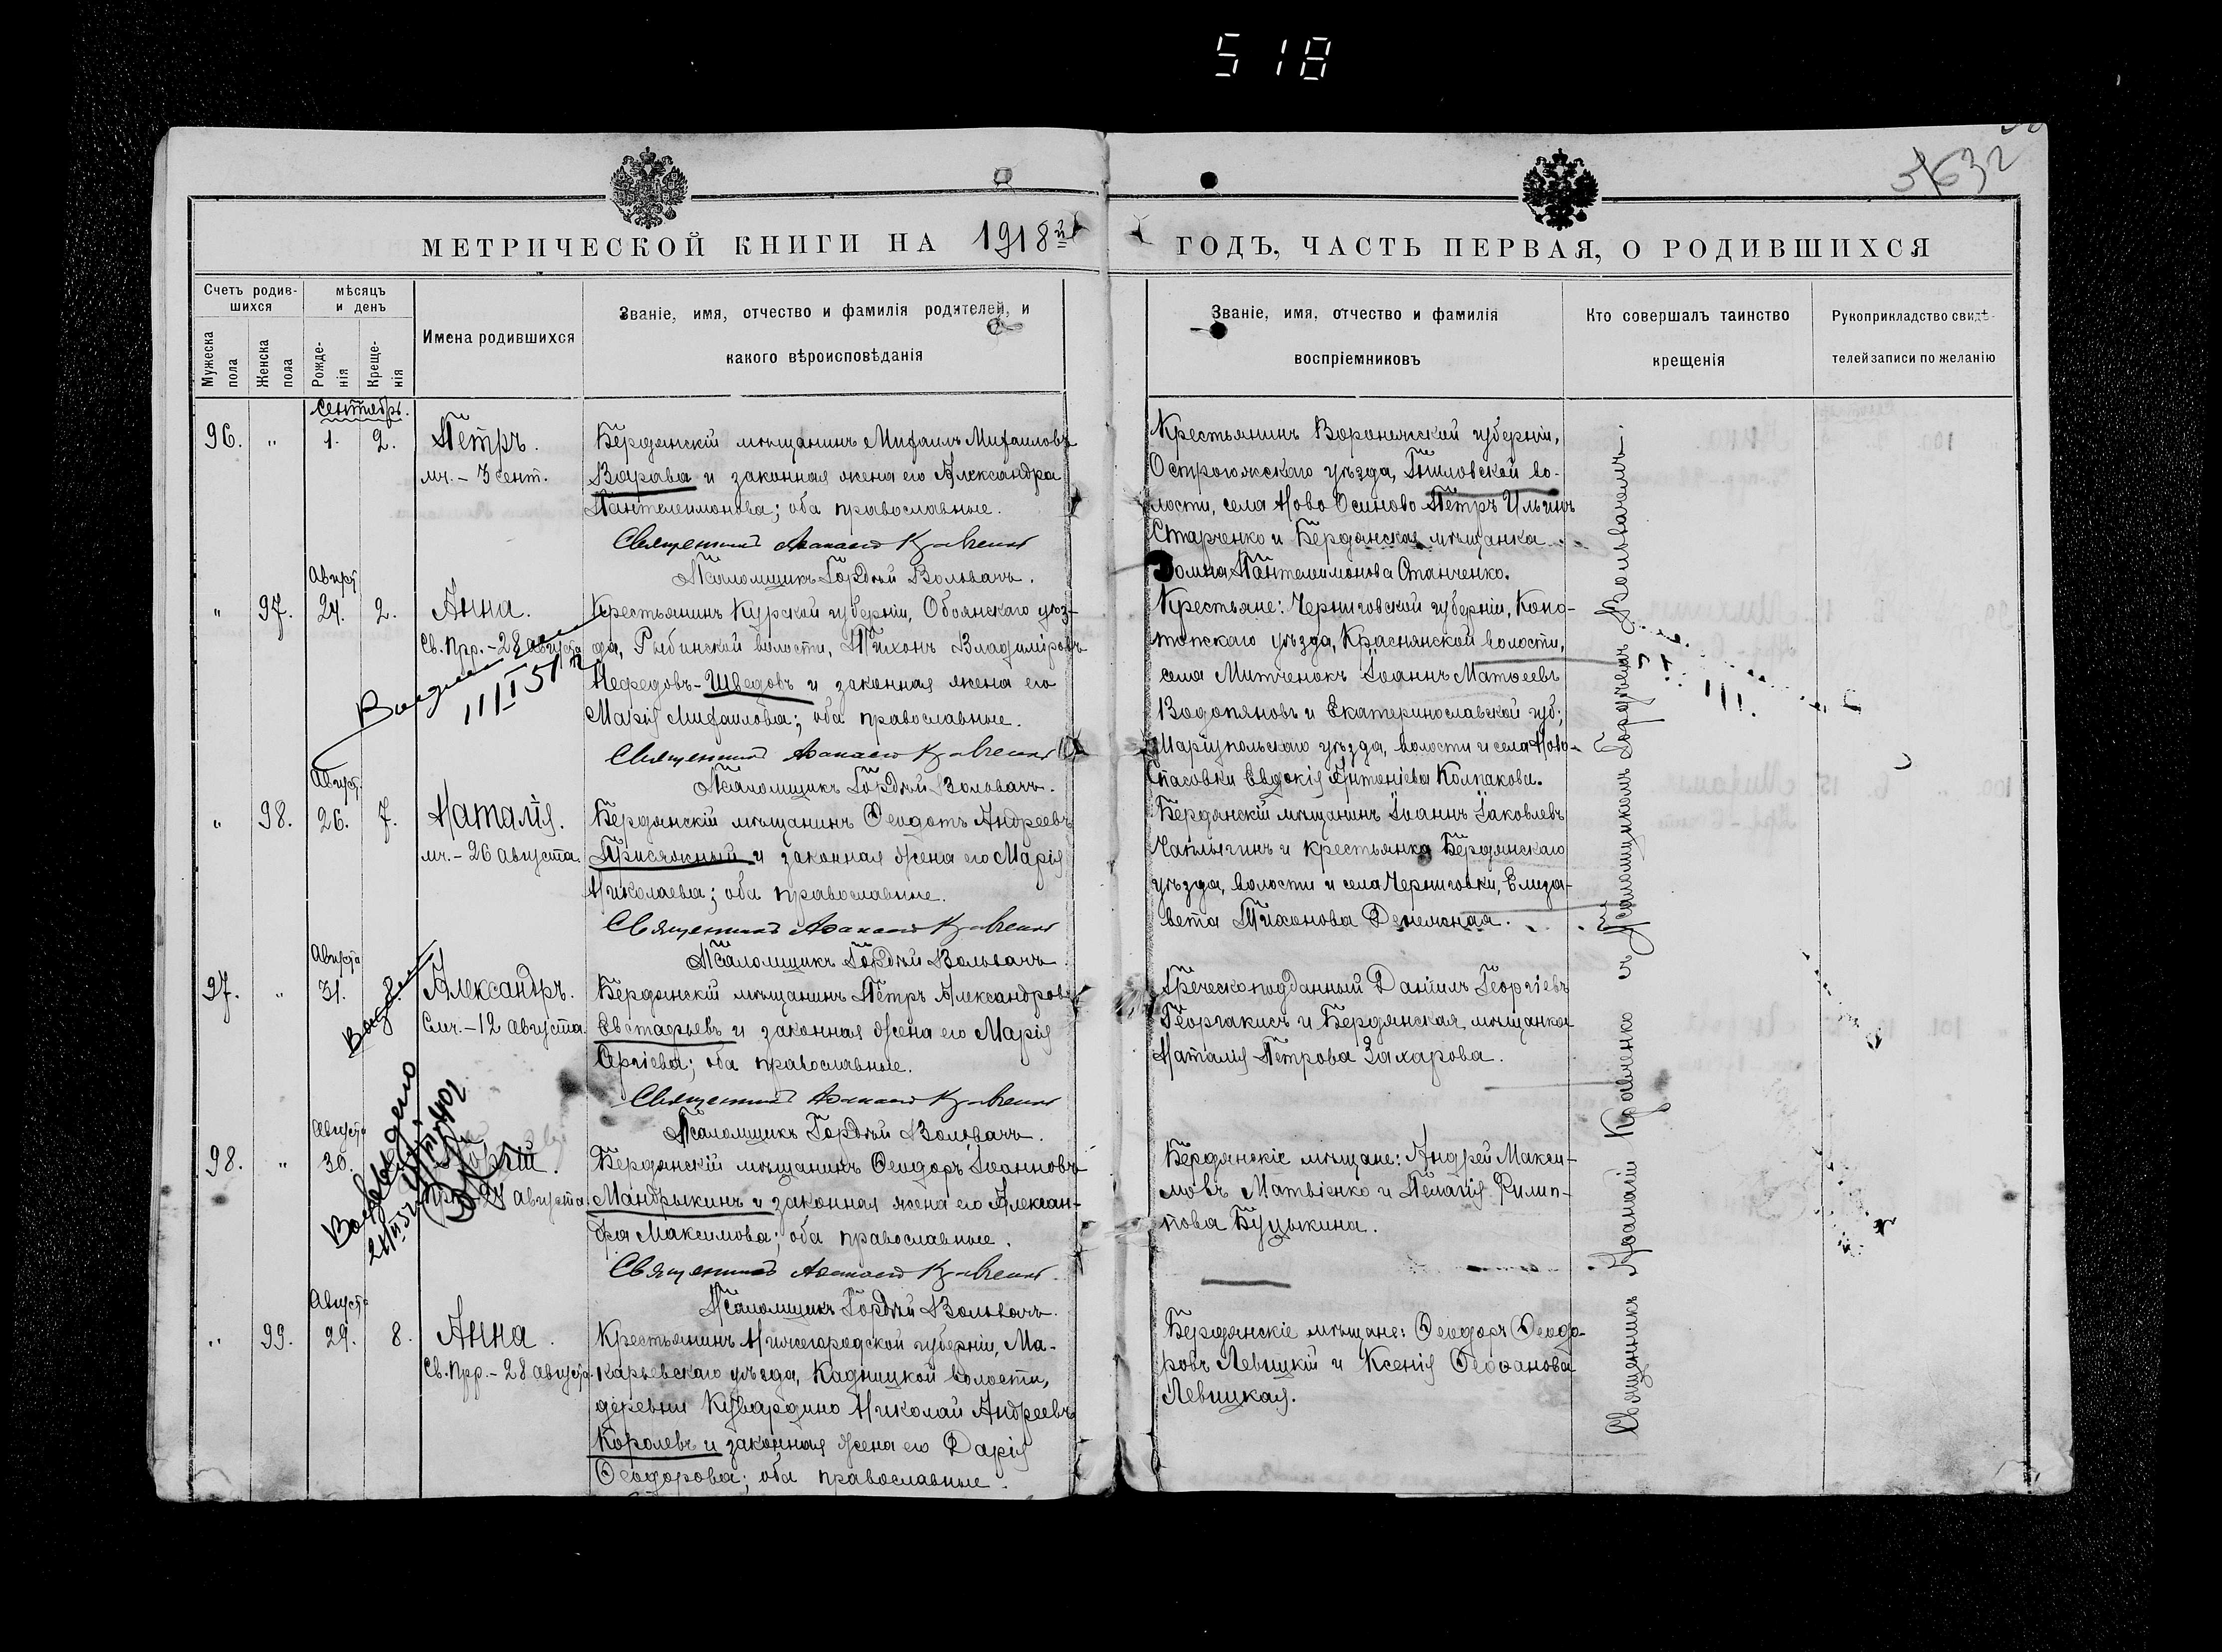 518
5632
МЕТРИЧЕСКОЙ КНИГИ НА 1918й
ГОДЪ, ЧАСТЬ ПЕРВАЯ, О РОДИВШИХСЯ
Счетъ родив-
шихся
Мужеска пола
Женска пола
мѣсяцъ
и день
Рожде-
нія
Креще-
нія
Имена родившихся
Званіе, имя, отчество и фамилія родителей, и
какого вѣроисповѣданія
Званіе, имя, отчество и фамилія
воспріемниковъ
Кто совершалъ таинство
крещенія
Рукоприкладство свидѣ-
телей записи по желанію
Сентябрь.
96. " 1. 2. Петръ.
мч. - 3 сент.
Бердянскій мѣщанинъ Михаилъ Михаиловъ
Варава и законная жена его Александра
Пантелеимонова; оба православные.
Священникъ Афанасій Кравченко
Псаломщикъ Гордѣй Воловачъ.
Крестьянинъ Воронежской губерніи,
Острогожскаго уѣзда, Гниловской во-
лости, села Ново Осиново Петръ Ильинъ
Старченко и Бердянская мѣщанка
Домна Пантелеимонова Станченко.
Август
" 97. 24. 2. Анна.
Св. Прр. - 28 августа
Крестьянинъ Курской губерніи, Обоянскаго уѣз-
да, Рыбинской волости, Тихонъ Владиміровъ
Нефедовъ-Шведовъ и законная жена его
Марія Михаилова; оба православные.
Священникъ Афанасій Кравченко
Псаломщикъ Гордѣй Воловачъ.
Крестьяне: Черниговской губерніи, Коно-
топскаго уѣзда, Краснянской волости,
села Митченокъ Іоаннъ Матѳеевъ
Водопяновъ и Екатеринославской губ;
Маріупольскаго уѣзда, волости и села Ново-
пасовки Евдокія Антоніева Колпакова.
Август
" 98. 26. 7. Наталія.
мч. - 26 августа.
Бердянскій мѣщанинъ Ѳеодотъ Андреевъ
Присяжный и законная жена его Марія
Николаева; оба православные.
Священникъ Афанасій Кравченко
Псаломщикъ Гордѣй Воловачъ.
Бердянскій мѣщанинъ Іоаннъ Іаковлевъ
Чаплыгинъ и крестьянка Бердянскаго
уѣзда, волости и села Черниговки, Елиза-
вета Тихонова
Августа
97. " 31. Александръ.
Смч. - 12 августа.
Бердянскій мѣщанинъ Петръ Александровъ
Евстафьевъ и законная жена его Марія
Сергіева; оба православные.
Священникъ Афанасій Кравченко
Псаломщикъ Гордѣй Воловачъ.
Греческоподданный Даніилъ Георгіевъ
Георгакисъ и Бердянская мѣщанка
Наталія Петрова Захарова.
Августа
98. " 30.
августа.
Бердянскій мѣщанинъ Ѳеодоръ Іоанновъ
Мандрыкинъ и законная жена его Алексан-
дра Максимова; оба православные.
Священникъ Афанасій Кравченко
Псаломщикъ Гордѣй Воловачъ.
Бердянскіе мѣщане: Андрей Макси-
мовъ Матвіенко и Пелагія Филип-
пова Буцыкина.
Августа
" 99. 29. 8. Анна.
Св. Прр. - 28 август.
Крестьянинъ Нижегородской губерніи, Ма-
карьевскаго уѣзда, Кадницкой волости,
деревни Кувардино Николай Андреевъ
Королевъ и законная жена его Дарія
Ѳеодорова; оба православные.
Бердянскіе мѣщане: Ѳеодоръ Ѳеодо-
ровъ Левицкій и Ксенія
Левицкая.
Священникъ Афанасій Кравченко съ Псаломщикомъ Гордѣемъ Воловачемъ.